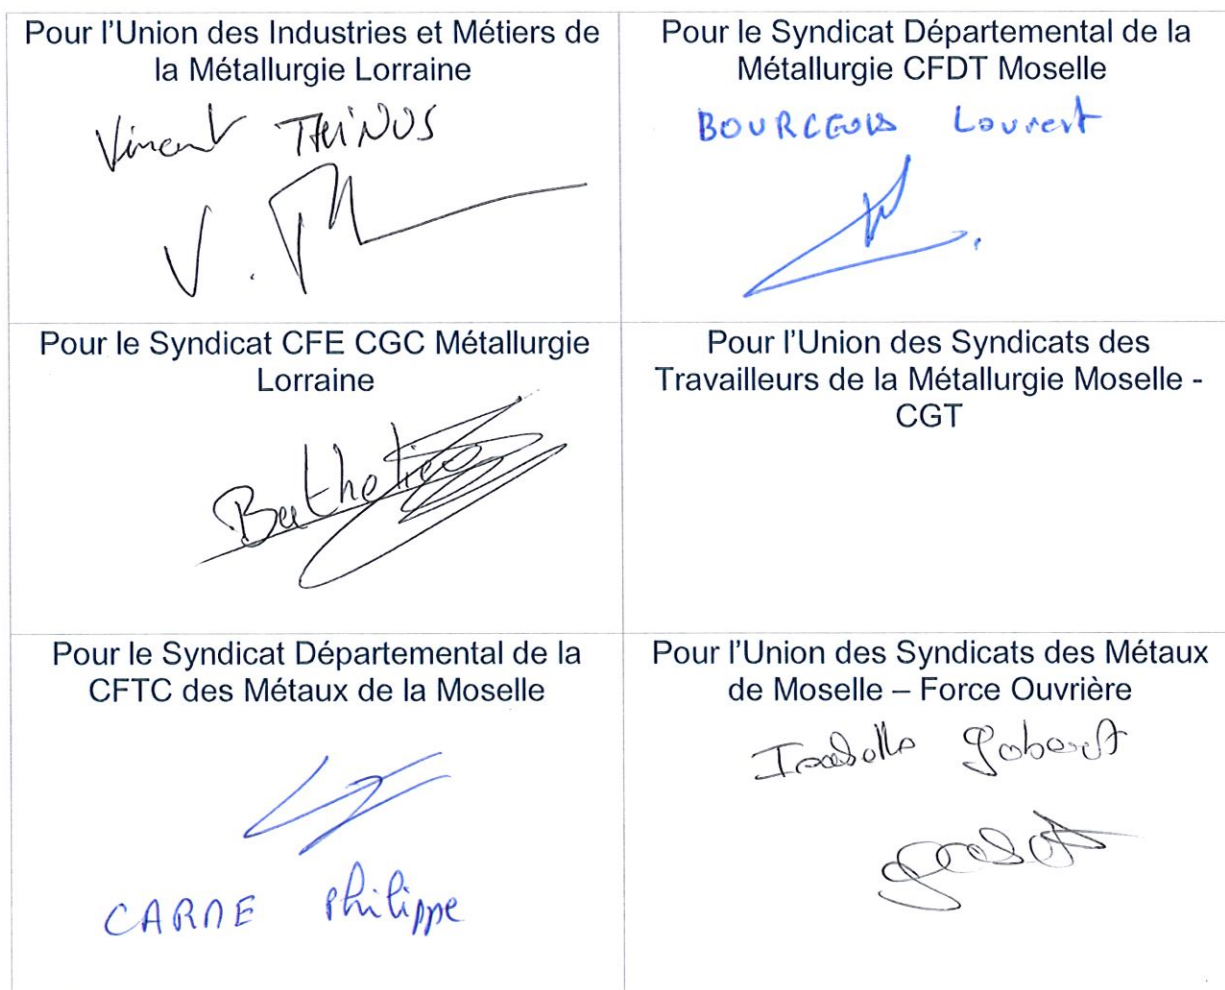 Pour l'Union des Industries et Métiers de
la Métallurgie Lorraine
Vincent THINUS
Pour le Syndicat Départemental de la
Métallurgie CFDT Moselle
BOURGEOIS Laurent
Pour le Syndicat CFE CGC Métallurgie
Lorraine
Pour l'Union des Syndicats des
Travailleurs de la Métallurgie Moselle -
CGT
Pour le Syndicat Départemental de la
CFTC des Métaux de la Moselle
Philippe
Pour l'Union des Syndicats des Métaux
de Moselle – Force Ouvrière
Isabelle